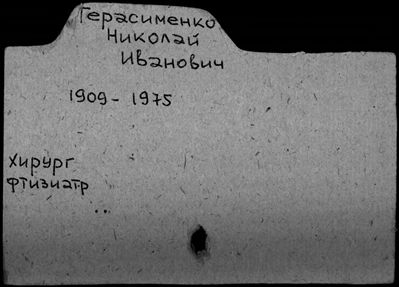 Герасименко
Николай
Иванович
1909 - 1975
хирург
фтизиатр